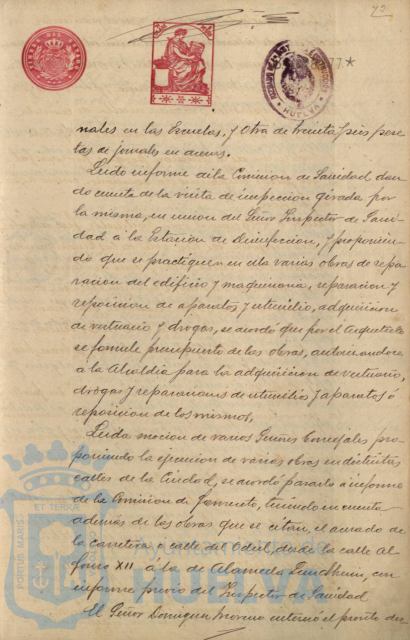 72
77*
HUELVA
nales en las Escuelas, y otra de treinta y seis pese
tas de jornales en
Leido informe de la Comision de Sanidad dan
do cuenta de la visita de inspeccion girada por
la misma, en union del Señor Inspector de Sani
dad á la Estacion de Desinfeccion, y proponien
do que se practiquen en ella varias obras de repa
racion del edificio y maquinaria, reparacion y
reposicion de aparatos y utensilio, adquisicion
de vestuario y drogas, se acordó que por el Arquitecto
se formule presupuesto de las obras, autorizandose
á la Alcaldia para la adquisicion de vestuario,
drogas y reparaciones de utensilios y aparatos ó
reposicion de los mismos.
Leida mocion de varios Señores Concejales pro
poniendo la ejecucion de varias obras en distintas
calles de la Ciudad, se acordó pasarla á informe
de la Comision de Fomento, teniendo en cuenta
además de las obras que se citan, el
la carretera ó calle del Odiel, desde la calle Al
fonso XII á la de Alameda Sundheim, con
informe previo del Inspector de Sanidad.
El Señor Dominguez Moreno
PORTUS MARIS ET TERRÆ
Ayuntamiento de
HUELVA